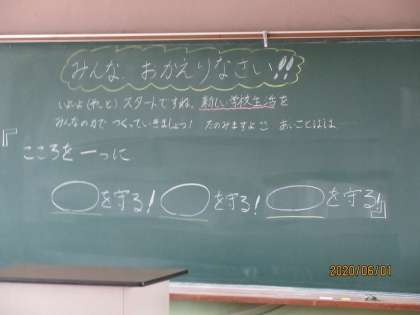 みんな、おかえりなさい!!
いよいよ(やっと)スタートですね。新しい学校生活を
みんなの力で つくっていきましょう! たのみますよ あいことばは
『こころを一つに
◯を守る! ◯を守る! ◯を守る!』
2020/06/01